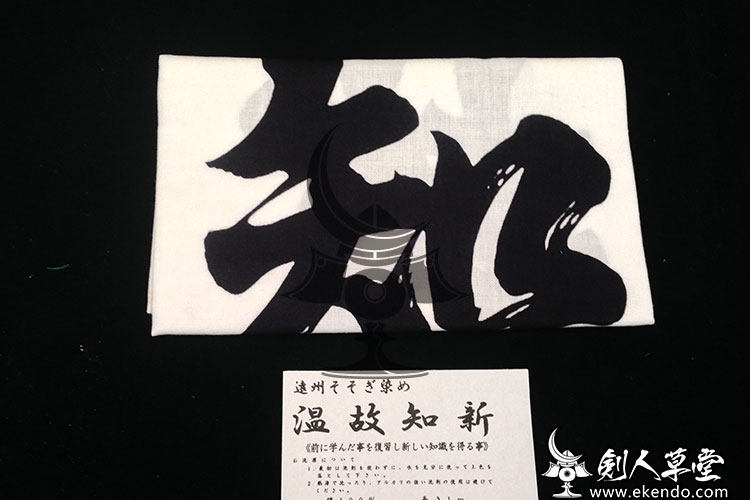 知
遠州そそぎ染め
温故知新
《前に学んだ事を復習し新しい知識を得る事》
お洗濯について
1.最初は洗剤を使わずに、水を充分に使って上色を
落として下さい。
2.熱湯で洗ったり、アルカリの強い洗剤の使用は避けて
ください。
綿100%
剣人草堂
www.ekendo.com